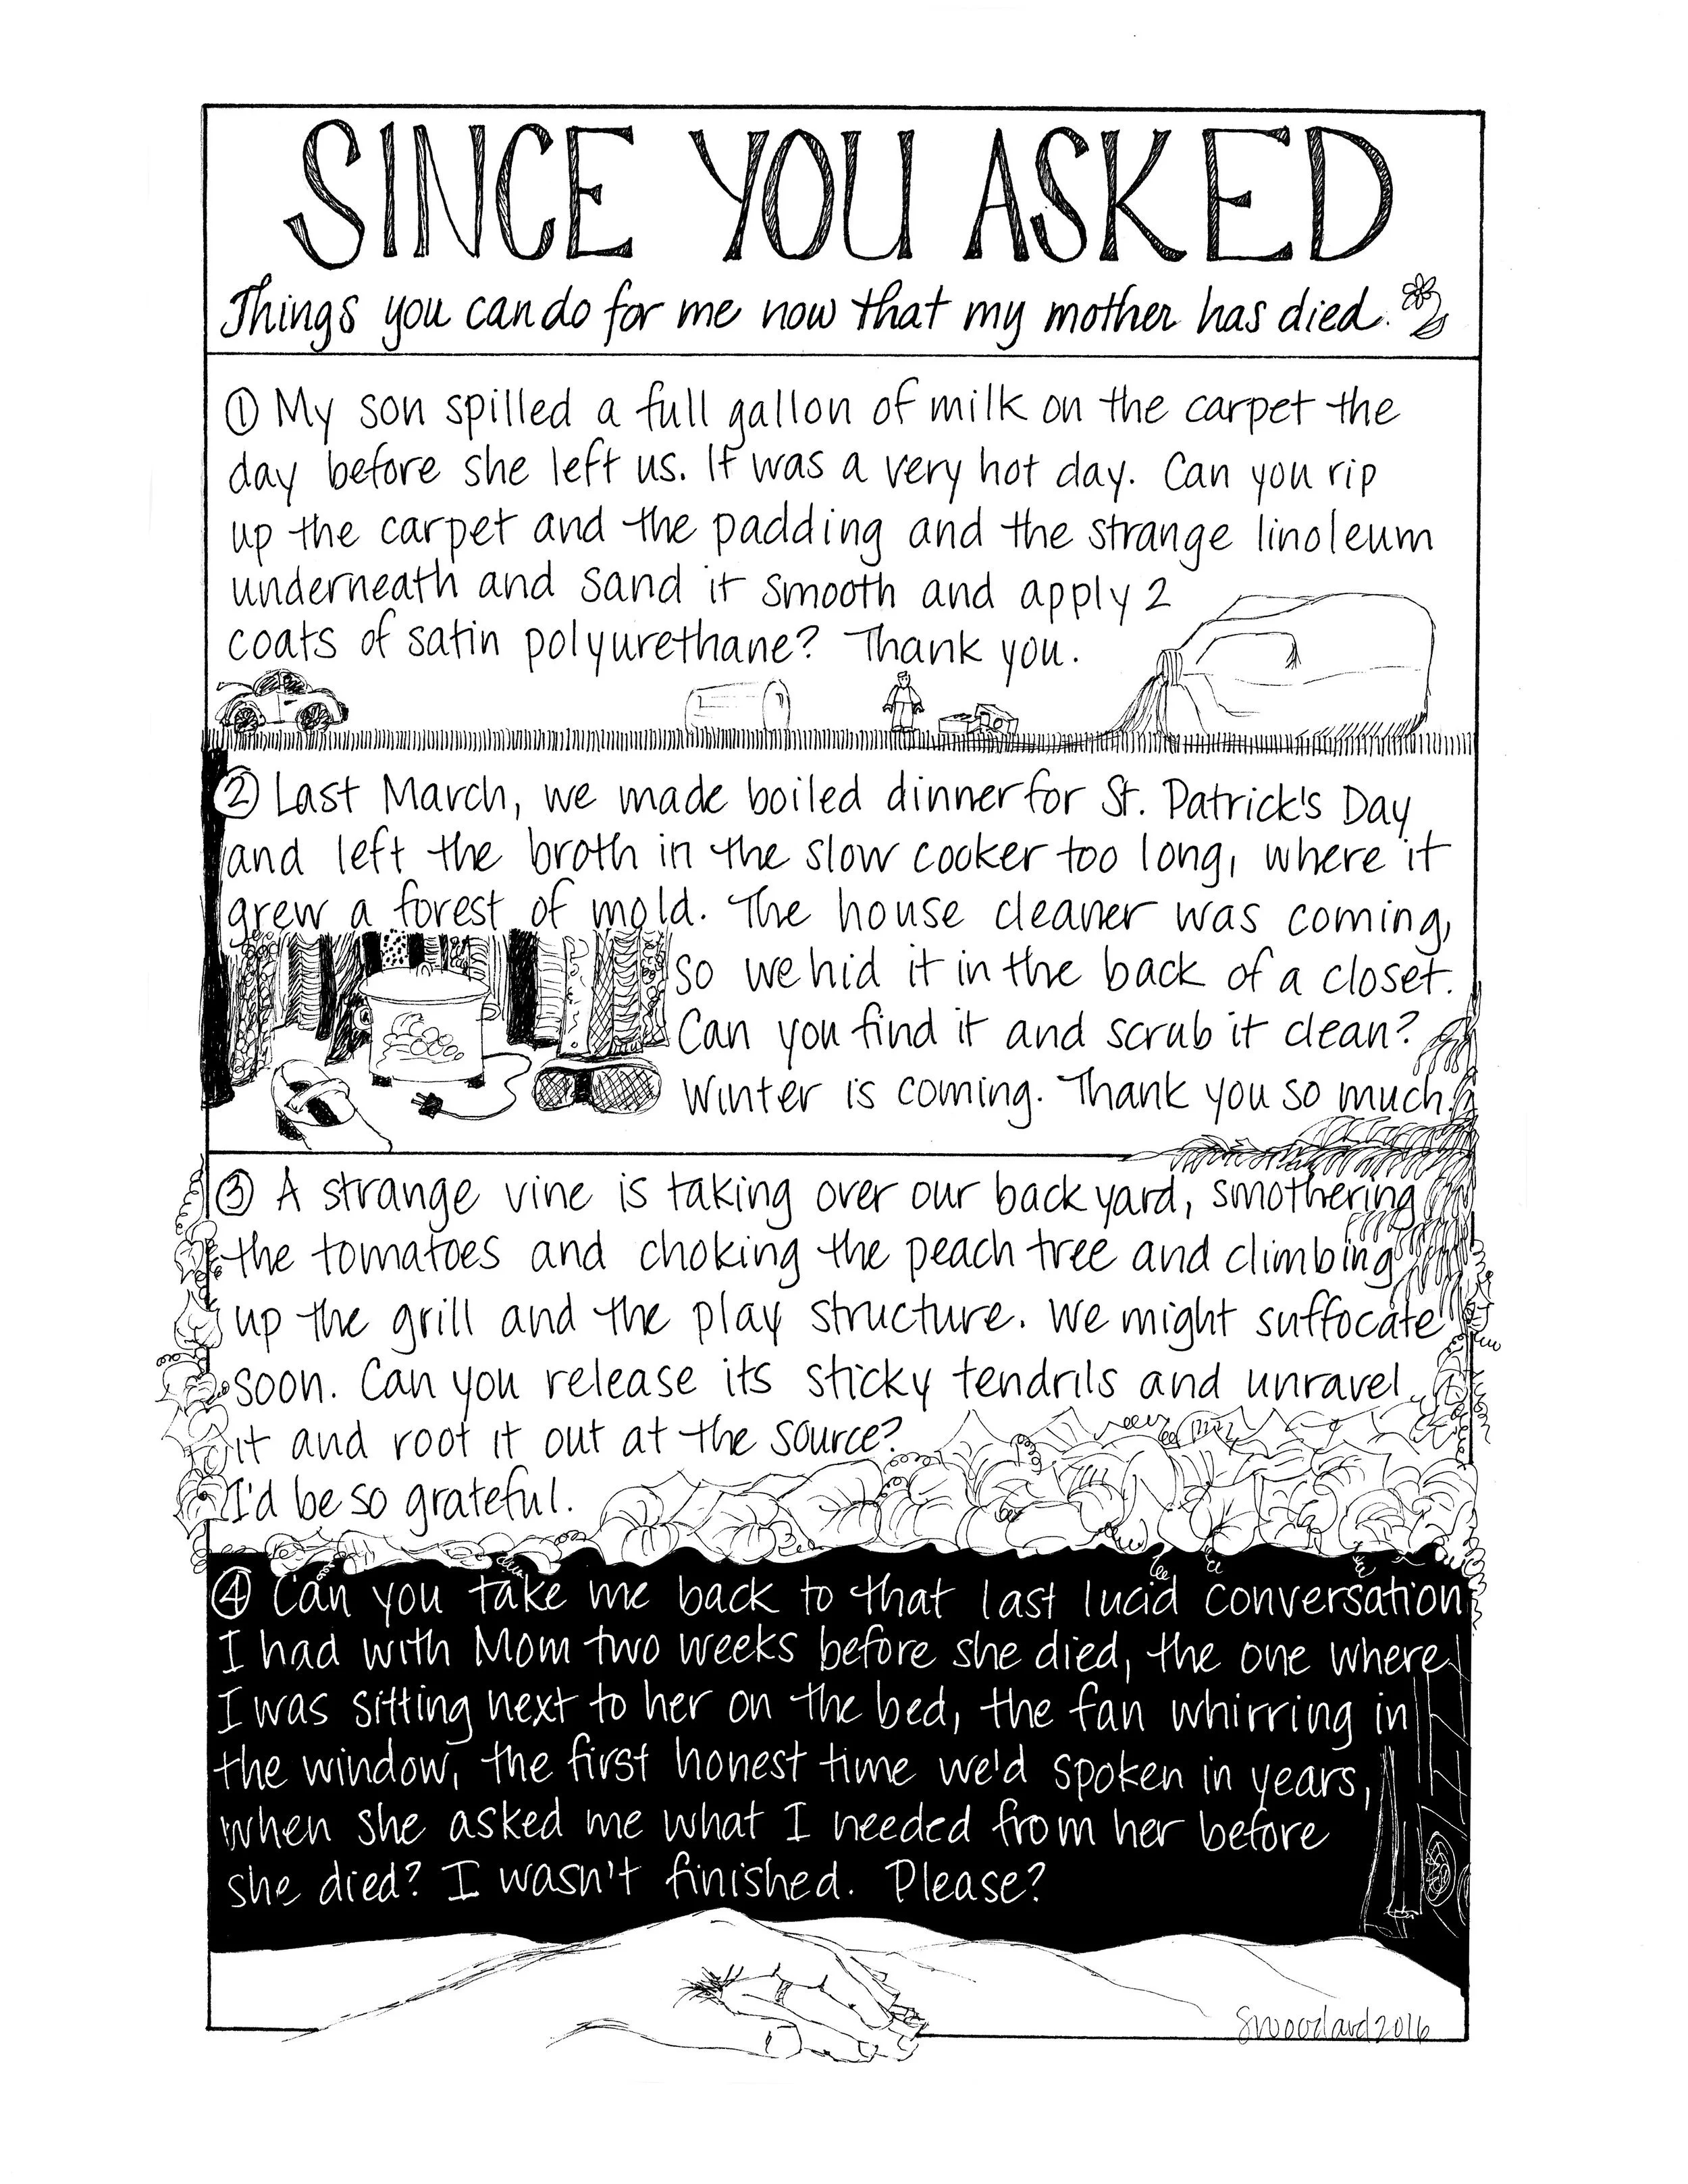 SINCE YOU ASKED
Things you can do for me now that my mother has died.
① My son spilled a full gallon of milk on the carpet the
day before she left us. It was a very hot day. Can you rip
up the carpet and the padding and the strange linoleum
underneath and sand it smooth and apply 2
coats of satin polyurethane? Thank you.
② Last March, we made boiled dinner for St. Patrick's Day
and left the broth in the slow cooker too long, where it
grew a forest of mold. The house cleaner was coming,
so we hid it in the back of a closet.
Can you find it and scrub it clean?
Winter is coming. Thank you so much.
③ A strange vine is taking over our back yard, smothering
the tomatoes and choking the peach tree and climbing
up the grill and the play structure. We might suffocate
soon. Can you release its sticky tendrils and unravel
it and root it out at the source?
I'd be so grateful.
④ Can you take me back to that last lucid conversation
I had with Mom two weeks before she died, the one where
I was sitting next to her on the bed, the fan whirring in
the window, the first honest time we'd spoken in years,
when she asked me what I needed from her before
she died? I wasn't finished. Please?
Swoodard 2016